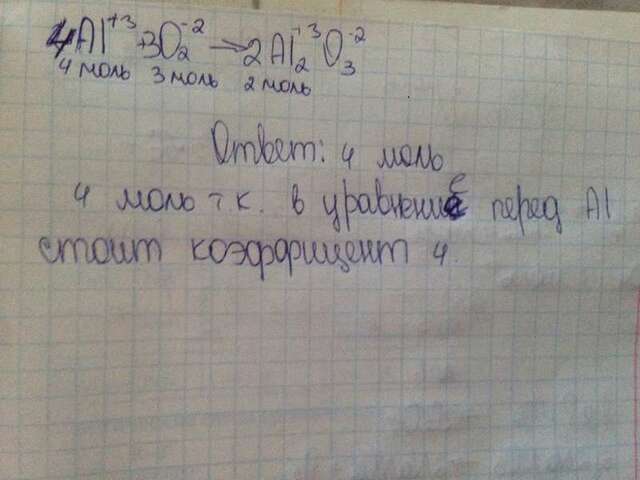 4Al⁺³ + 3O₂⁻² → 2Al₂⁺³O₃⁻²
4 моль 3 моль 2 моль
Ответ: 4 моль
4 моль т.к. в уравнение перед Al
стоит коэффициент 4.